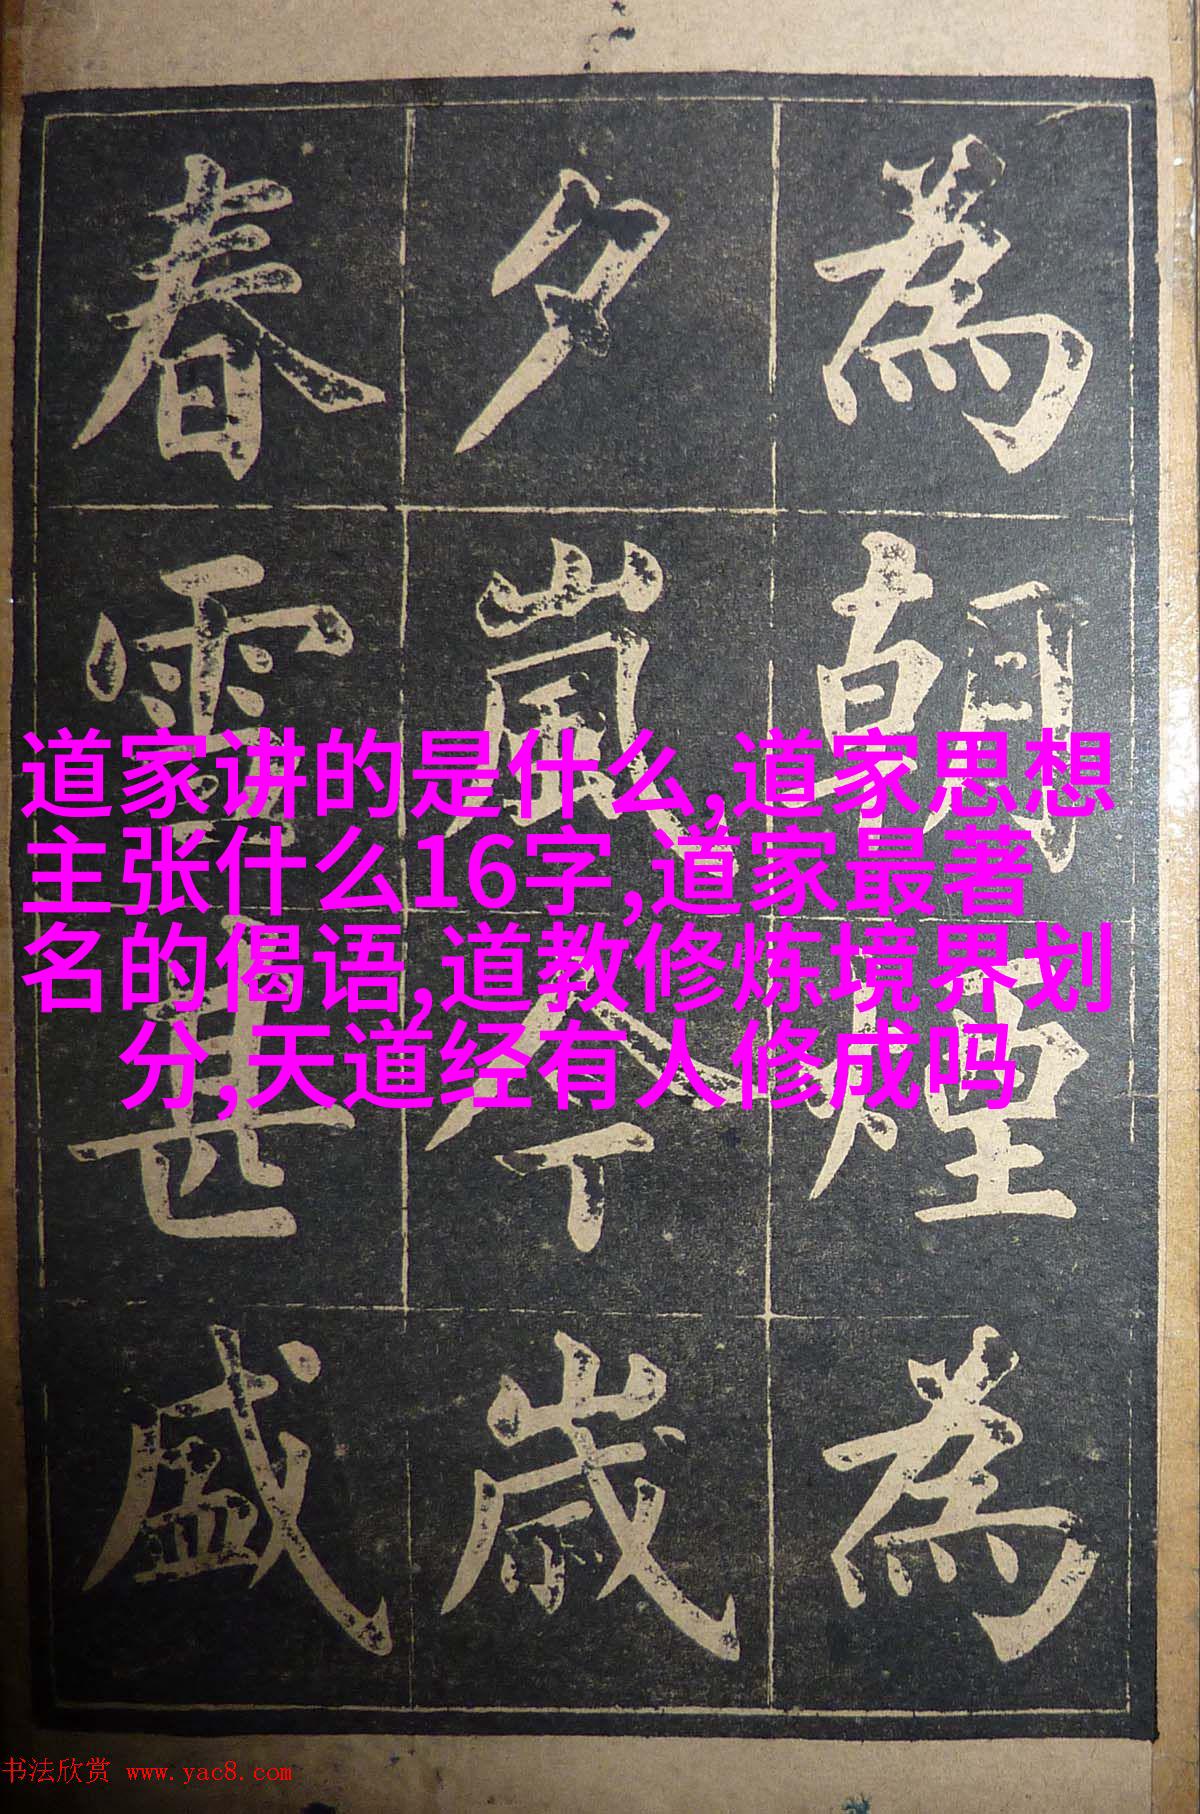 為朝煙為
夕嵐今歲
春雪甚盛
道家讲的是什么,道家思想
主张什么16字,道家最著
名的偈语,道教修炼境界划
分,天道经有人修成吗
书法欣赏 www.yac8.com